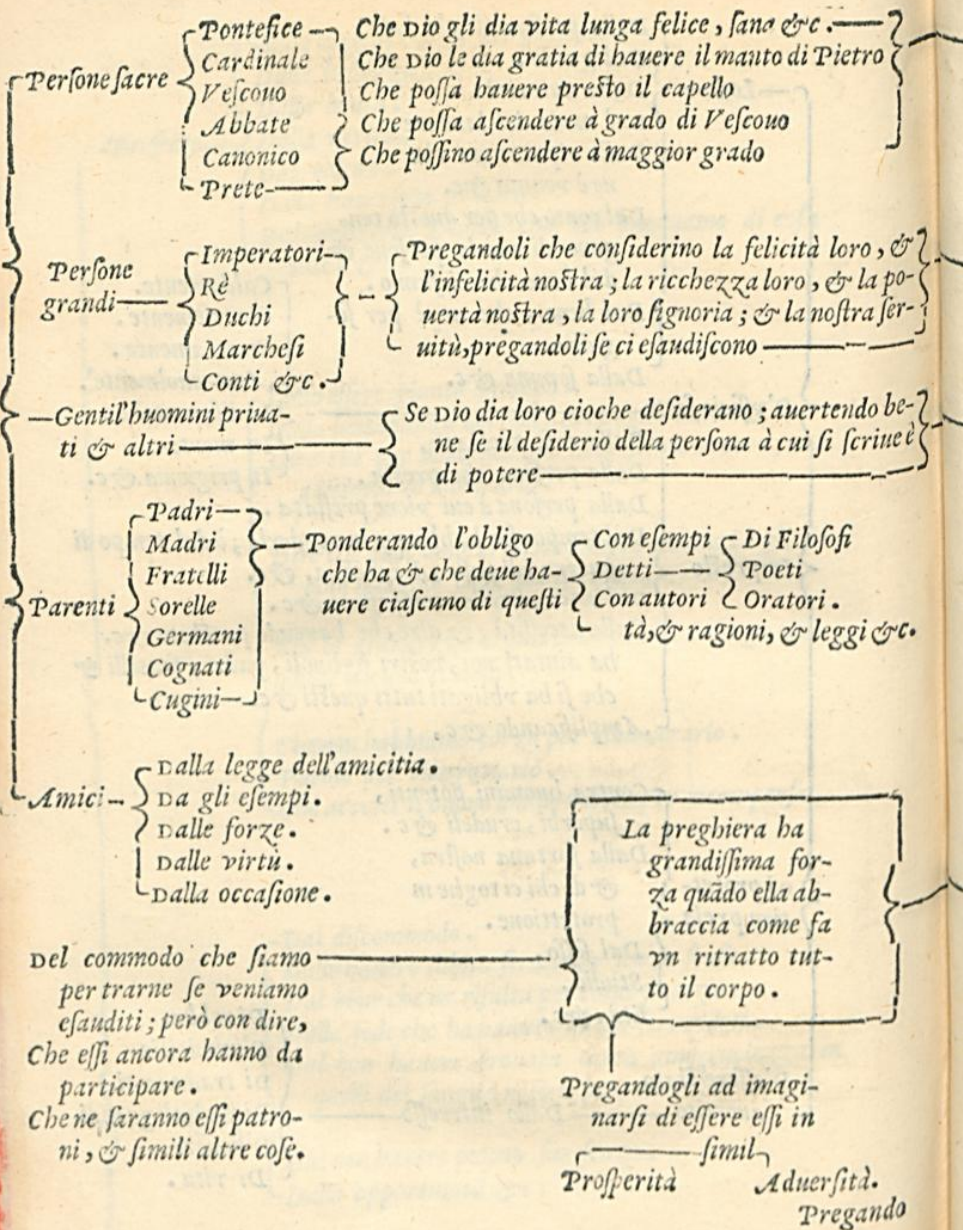 Perſone ſacre
Pontefice
Cardinale
Veſcouo
Abbate
Canonico
Prete
Che Dio gli dia vita lunga felice, ſana &c.
Che Dio le dia gratia di hauere il manto di Pietro
Che poſſa hauere preſto il capello
Che poſſa aſcendere à grado di Veſcouo
Che poſſino aſcendere à maggior grado
Perſone
grandi
Imperatori
Rè
Duchi
Marcheſi
Conti &c.
Pregandoli che conſiderino la felicità loro, &
l'infelicità noſtra; la ricchezza loro, & la po-
uertà noſtra, la loro ſignoria; & la noſtra ſer-
uitù, pregandoli ſe ci eſaudiſcono
Gentil'huomini priua-
ti & altri
Se Dio dia loro cioche deſiderano; auertendo be-
ne ſe il deſiderio della perſona à cui ſi ſcriue è
di potere
Parenti
Padri
Madri
Fratelli
Sorelle
Germani
Cognati
Cugini
Ponderando l'obligo
che ha & che deue ha-
uere ciaſcuno di queſti
Con eſempi
Detti
Con autori
tà, & ragioni, & leggi &c.
Di Filoſofi
Poeti
Oratori.
Amici
Dalla legge dell'amicitia.
Da gli eſempi.
Dalle forze.
Dalle virtù.
Dalla occaſione.
Del commodo che ſiamo
per trarne ſe veniamo
eſauditi; però con dire,
Che eſſi ancora hanno da
participare.
Che ne ſaranno eſſi patro-
ni, & ſimili altre coſe.
La preghiera ha
grandiſſima for-
za quãdo ella ab-
braccia come fa
vn ritratto tut-
to il corpo.
Pregandogli ad imagi-
narſi di eſſere eſſi in
ſimil
Proſperità Aduerſità.
Pregando